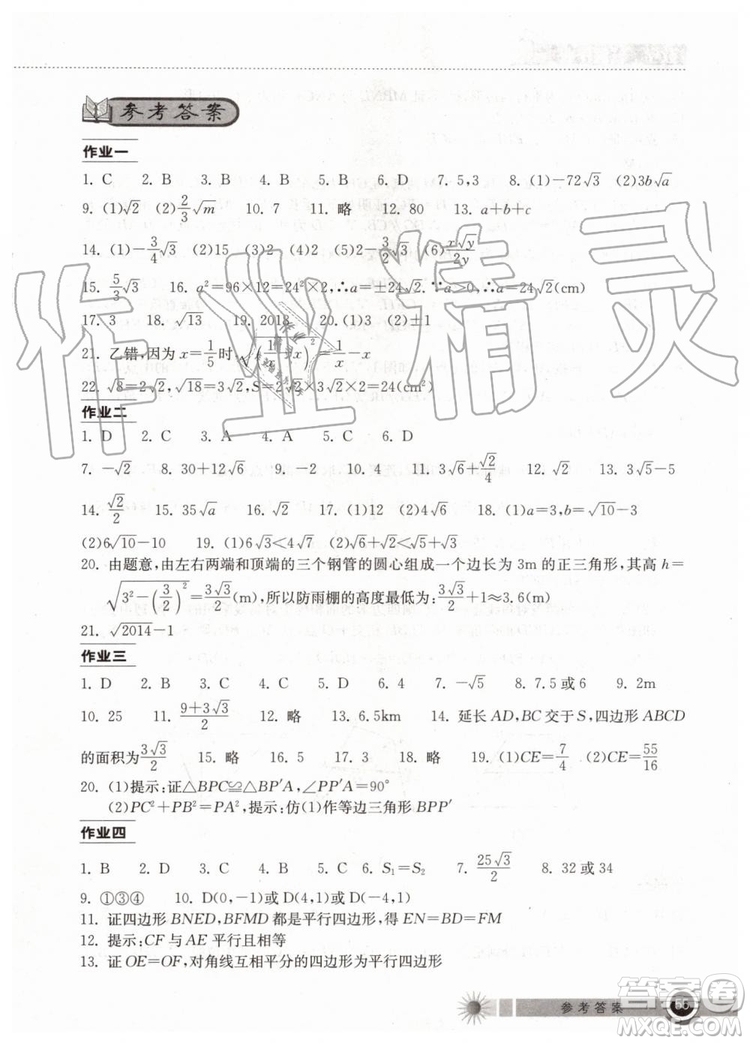 参考答案
作业一
1. C 2. B 3. B 4. B 5. B 6. D 7. 5,3 8. (1)-72√3 (2)3b√a
9. (1)√2 (2)2/3√m 10. 7 11. 略 12. 80 13. a+b+c
14. (1)-3/4√3 (2)15 (3)-9√2 (4)5 (5)2-3/2√3 (6)x√y/2y
15. 5/3√3 16. a²=96×12=24²×2,∴a=±24√2.∵a>0,∴a=24√2(cm)
17. 3 18. √13 19. 2018 20. (1)3 (2)±1
21. 乙错,因为x=1/5时,√(1/x-x)²=1/x-x
22. √8=2√2,√18=3√2,S=2√2×3√2×2=24(cm²)
作业二
1. D 2. C 3. A 4. A 5. C 6. D
7. -√2 8. 30+12√6 9. -2 10. 4 11. 3√6+√2/4 12. √3 13. 3√5
14. √2/2 15. 35√a 16. √2 17. (1)0 (2)12 (4)2√6 18. (1)a=3,b=√10-3
(2)6√10-10 19. (1)6√3<4√7 (2)6√3<4√7
20. 由题意,由左右两端和顶端的三个钢管的圆心组成一个边长为3m的正三角形,其高h=
√3²-(3/2)²=3√3/2(m),所以防雨棚的最高为:3√3/2+1≈3.6(m)
21. √2014-1
作业三
1. D 2. B 3. C 4. C 5. D 6. 4 7. -√5 8. 7.5或6 9. 2m
10. 25 11. 9+3√3/2 12. 略 13. 6.5km 14. 延长AD,BC交于S,四边形ABCD
的面积为3√3/2 15. 略 16. 0.5 17. 3 18. 略 19. (1)CE=7/4 (2)CE=55/16
20. (1)提示:证△BPC≌△BP′A,∠PP′A=90°
(2)PC²+PB²=PA²,提示:仿(1)作等边三角形BPP′
作业四
1. B 2. D 3. D 4. C 5. C 6. S₁=S₂ 7. 25√3/2 8. 32或34
9. ①③④ 10. D(0,-1)或D(4,1)或D(2,-3)
11. 证四边形BNED,BFMD都是平行四边形,得EN=BD=FM
12. 提示:CF与AE平行且相等
13. 证OE=OF,对角线互相平分的四边形为平行四边形
参考答案
作业精灵
答案圈
MXQE.COM